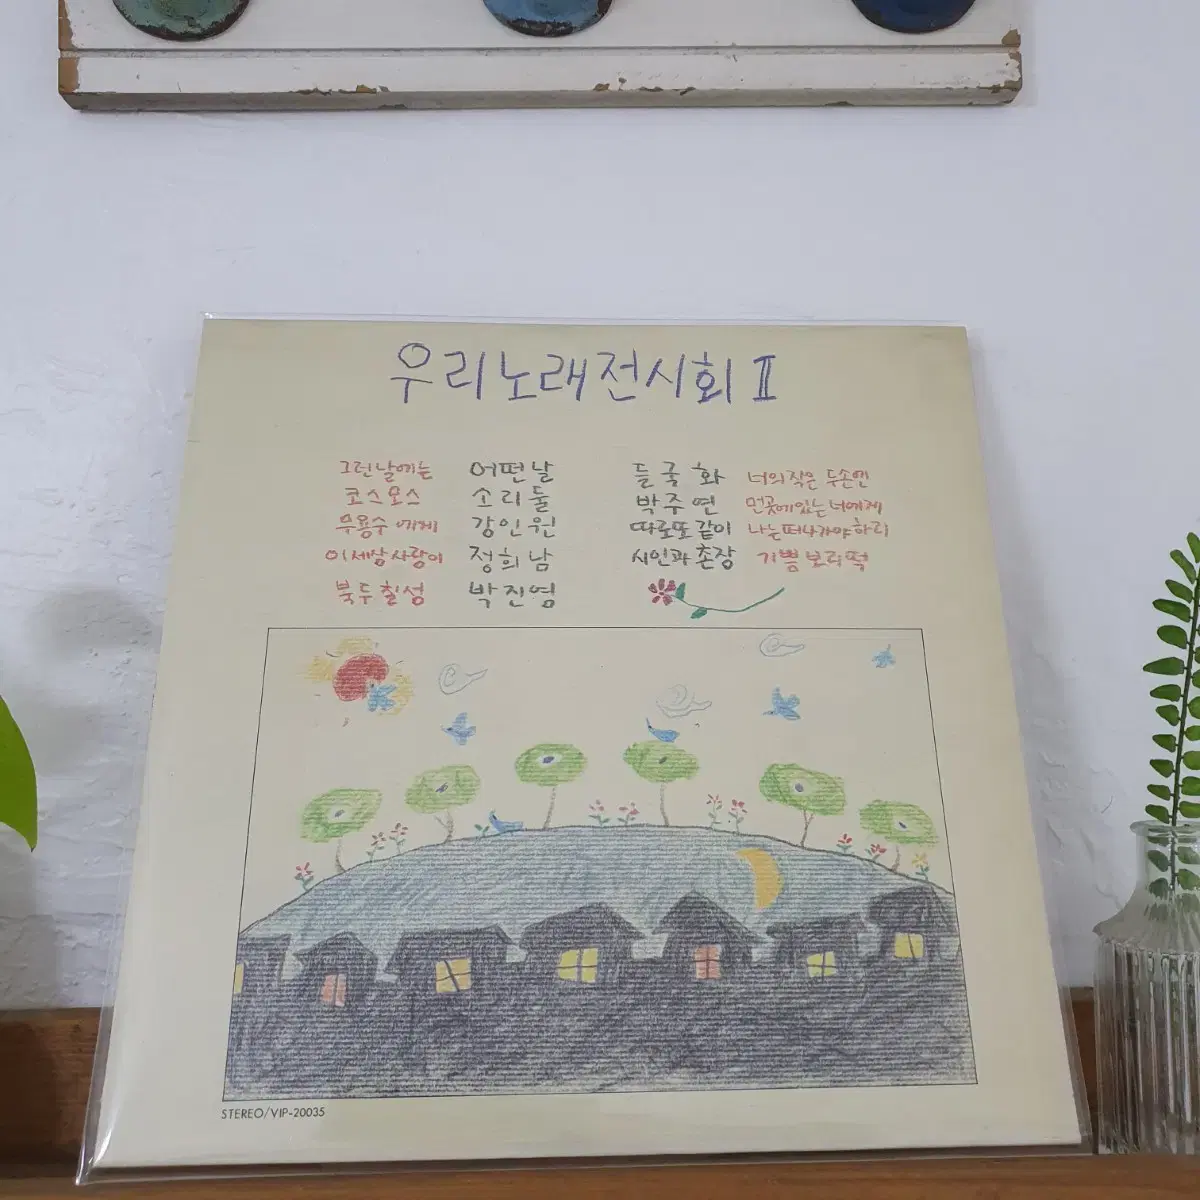 우리노래전시회 II
그런날에는 어떤날 들국화 너의작은 두손엔
코스모스 소리둘 박주연 먼곳에있는 너에게
무용수에게 강인원 따로또같이 나는떠나가야하리
이세상사랑이 정희남 시인과촌장 기쁨보리떡
북두칠성 박진영
STEREO/VIP-20035